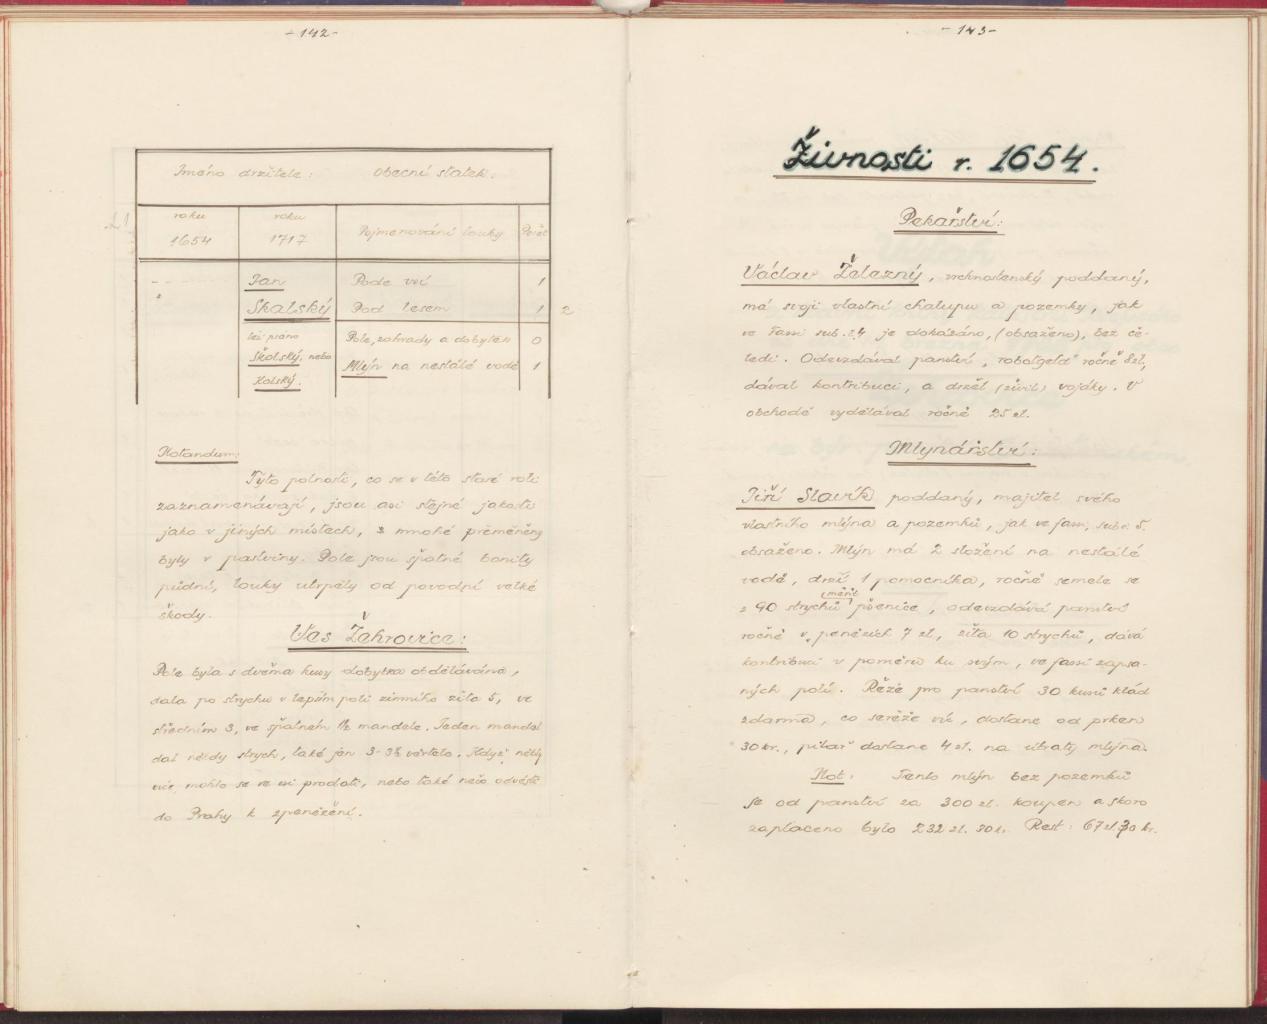 - 142 -
Jméno držitele: obecní statek:
roku roku
1654 1717 Pojmenování louky Počet
Jan Pode vsí 1
Skalský Pod lesem 1 2
též psáno Pole, zahrady a dobytek 0
Školský, nebo Mlýn na nestálé vodě 1
Kolský.
Notandum:
Tyto polnosti, co se v této staré roli
zaznamenávají, jsou asi stejné jakosti
jako v jiných místech, z mnohé přeměněny
byly v pastviny. Pole jsou špatné bonity
půdní, louky utrpěly od povodní velké
škody.
Ves Žehrovice:
Pole byla s dvěma kusy dobytka obdělávána,
dala po strychu v lepším poli zimního žita 5, ve
středním 3, ve špatném 1½ mandele. Jeden mandel
dal někdy strych, také jen 3-3½ věrtele. Když někdy
více, mohlo se ve vsi prodati, nebo také něco odvésti
do Prahy k zpeněžení.
- 143 -
Živnosti r. 1654.
Pekařství:
Václav Železný, vrchnostenský poddaný,
má svoji vlastní chalupu a pozemky, jak
ve fassi sub. 24 je dokázáno, (obsaženo), bez če-
ledi. Odevzdával panství, "robotgeld" ročně 8 zl.,
dával kontribuci, a držel (živil) vojáky. V
obchodě vydělával ročně 25 zl.
Mlynářství:
Jiří Slavík poddaný, majitel svého
vlastního mlýna a pozemků, jak ve fassi, sub: 5.
obsaženo. Mlýn má 2 složení na nestálé
vodě, drží 1 pomocníka, ročně semele se
z 90 strychů (měřit) pšenice, odevzdává panství
ročně v penězích 7 zl, žita 10 strychů, dává
kontribuci v poměru ku svým, ve fassi zapsa-
ných polí. Řeže pro panství 30 kusů klád
zdarma, co seřeže víc, dostane od prken
30 kr., pilař dostane 4 zl. na útraty mlýna.
Not: Tento mlýn bez pozemků
se od panství za 300 zl. koupen a skoro
zaplaceno bylo 232 zl. 30 kr. Rest: 67 zl 30 kr.